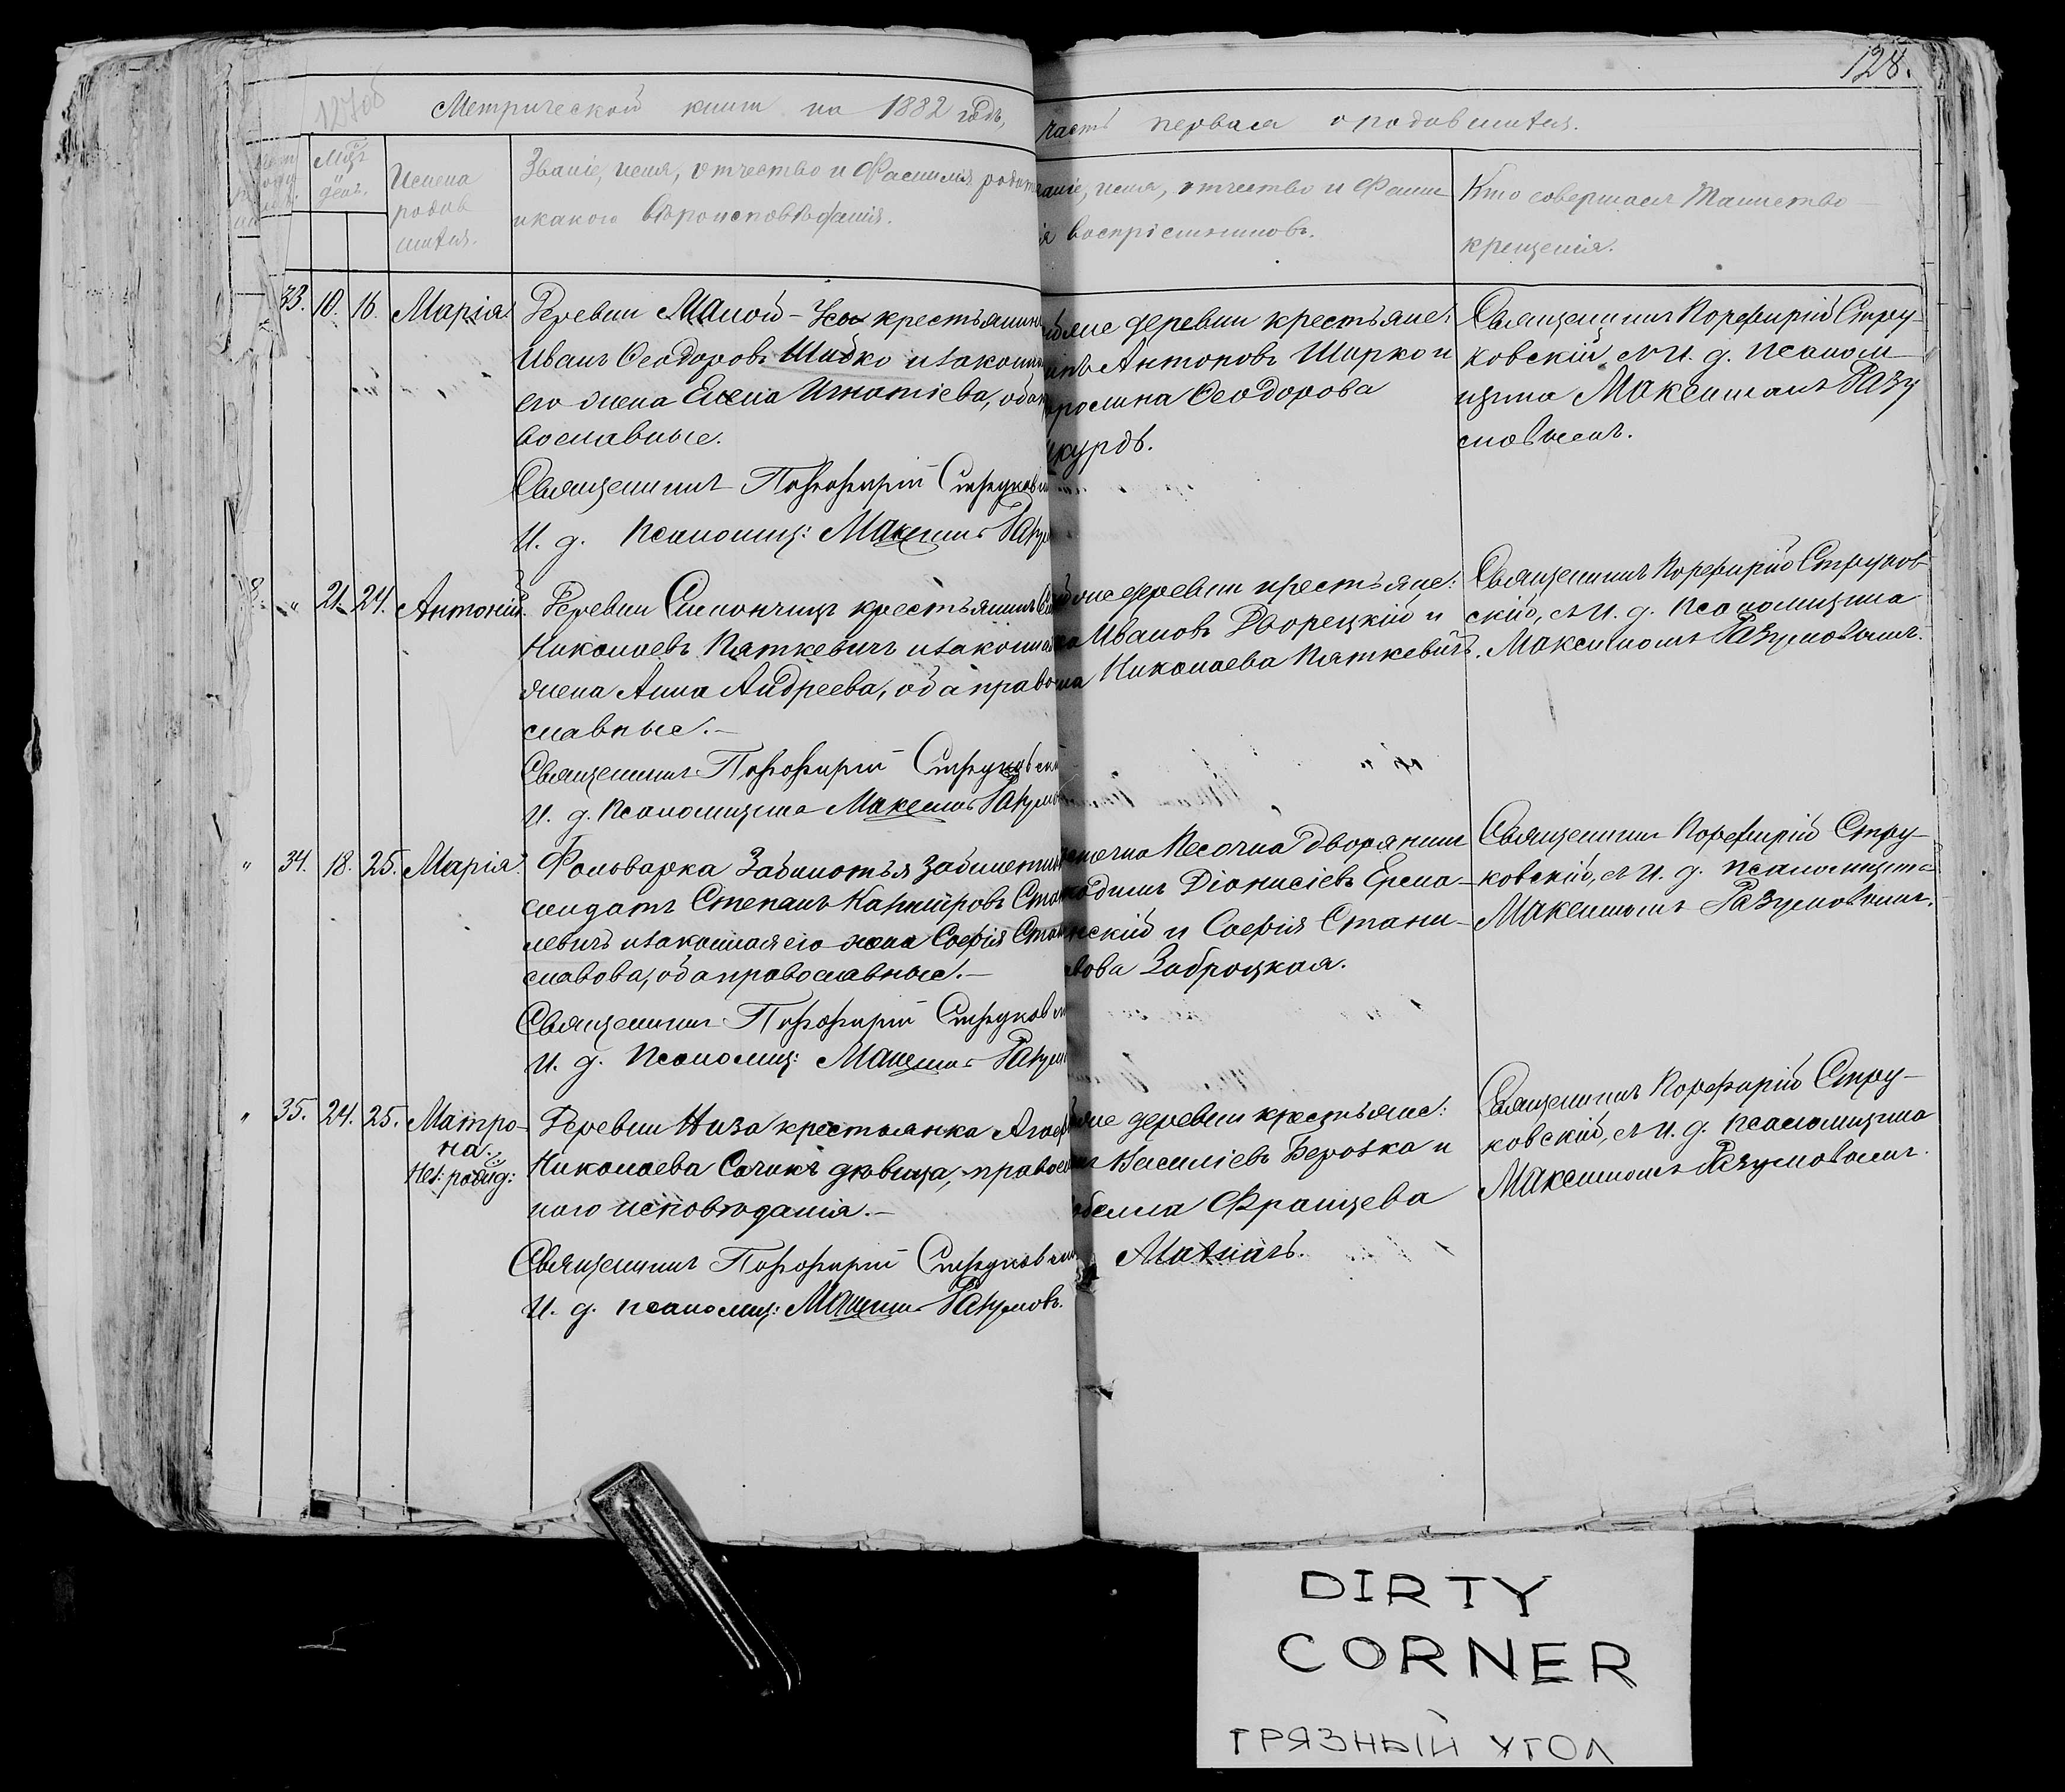 127об
128.
Метрической книги на 1882 годъ,
часть первая о родившихся.
Мѣс. и день.
Имена родив шихся.
Званіе, имя, отчество и Фамилія родит
и какого вѣроисповѣданія.
аніе, имя, отчество и Фами
ія воспріемниковъ.
Кто совершалъ Таинство
крещенія.
33. 10. 16. Марія.
Деревни Малой-Усы крестьянинъ
Иванъ Ѳеодоровъ Шибко и законная
его жена Елена Игнатіева, оба
вославные.
Священникъ Порфирій Струков
И. д. Псаломщ: Максимъ Разум
деревни крестьяне:
Антоновъ Ширко и
Ѳеодорова
Священникъ Порфирій Стру-
ковскій, съ И. д. Псалом-
щика Максимомъ Разу
мовымъ.
8. " 21. 24. Антоній.
Деревни Симончицъ крестьянинъ
Николаевъ Пяткевичъ и законная
жена Анна Андреева, оба право
славные.-
Священникъ Порфирій Струковскій
И. д. Псаломщика Максимъ Разумов
деревни крестьяне:
Ивановъ Дворецкій и
Николаева Пяткевичъ.
Священникъ Порфирій Струков-
скій, съ И. д. Псаломщика
Максимомъ Разумовымъ.
" 34. 18. 25. Марія.
Фольварка Заболотья
солдатъ Степанъ Казиміровъ
левичъ и законная его жена Софія Стани
славова, оба православные.-
Священникъ Порфирій Струков
И. д. Псаломщ: Максимъ Разум
Песочна дворянин
Діонисіевъ Ерма-
и Софія Стани-
вова Заброцкая.
Священникъ Порфирій Стру-
ковскій, съ И. д. Псаломщика
Максимомъ Разумовымъ.
" 35. 24. 25. Матро-
на.
Нез: рожд:
Деревни Низа крестьянка
Николаева Сачикъ дѣвица, правосл
наго исповѣданія.-
Священникъ Порфирій Струков
И. д. псаломщ: Максимъ Разумовъ.
деревни крестьяне:
Василіевъ Беровка и
Францева
Священникъ Порфирій Стру-
ковскій, съ И. д. Псаломщика
Максимомъ Разумовымъ.
DIRTY
CORNER
ГРЯЗНЫЙ УГОЛ